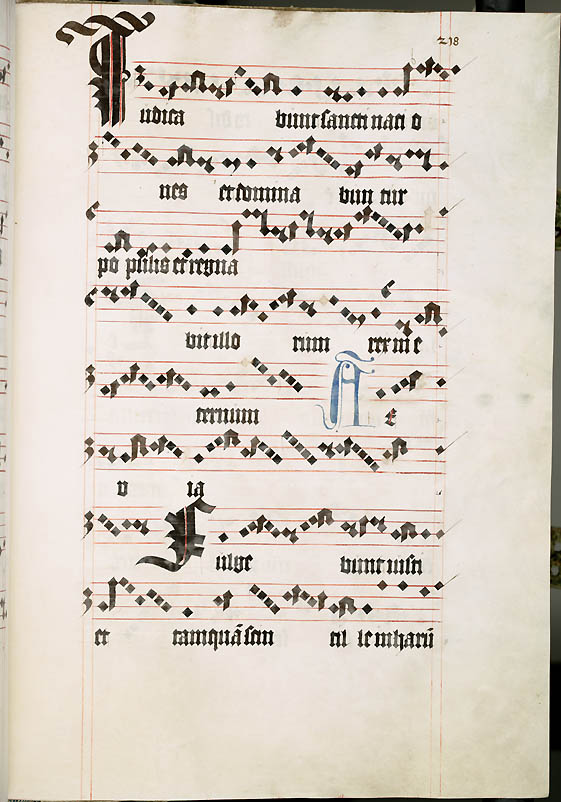 218
Iudica bunt sancti naci o
nes et domina bun tur
po pulis et regna
bit illo rum rex in e
ternum A E
v ia
Fulge bunt iusti
et tamquā scin til le in harū